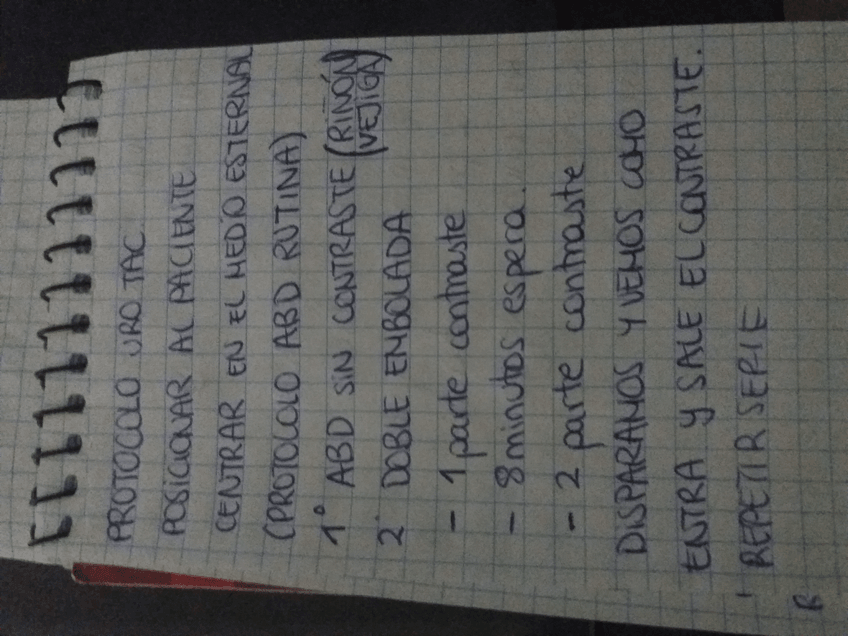 PROTOCOLO URO TAC.
POSICIONAR AL PACIENTE
CENTRAR EN EL MEDIO ESTERNAL
(PROTOLOLO ABD RUTINA)
1° ABD SIN CONTRASTE (RIÑÓN)
(VEJIGA)
2° DOBLE EMBOLADA
- 1 parte contraste
- 8 minutos espera.
- 2 parte contraste
DISPARAMOS Y VEMOS COMO
ENTRA Y SALE EL CONTRASTE.
' REPETIR SERIE